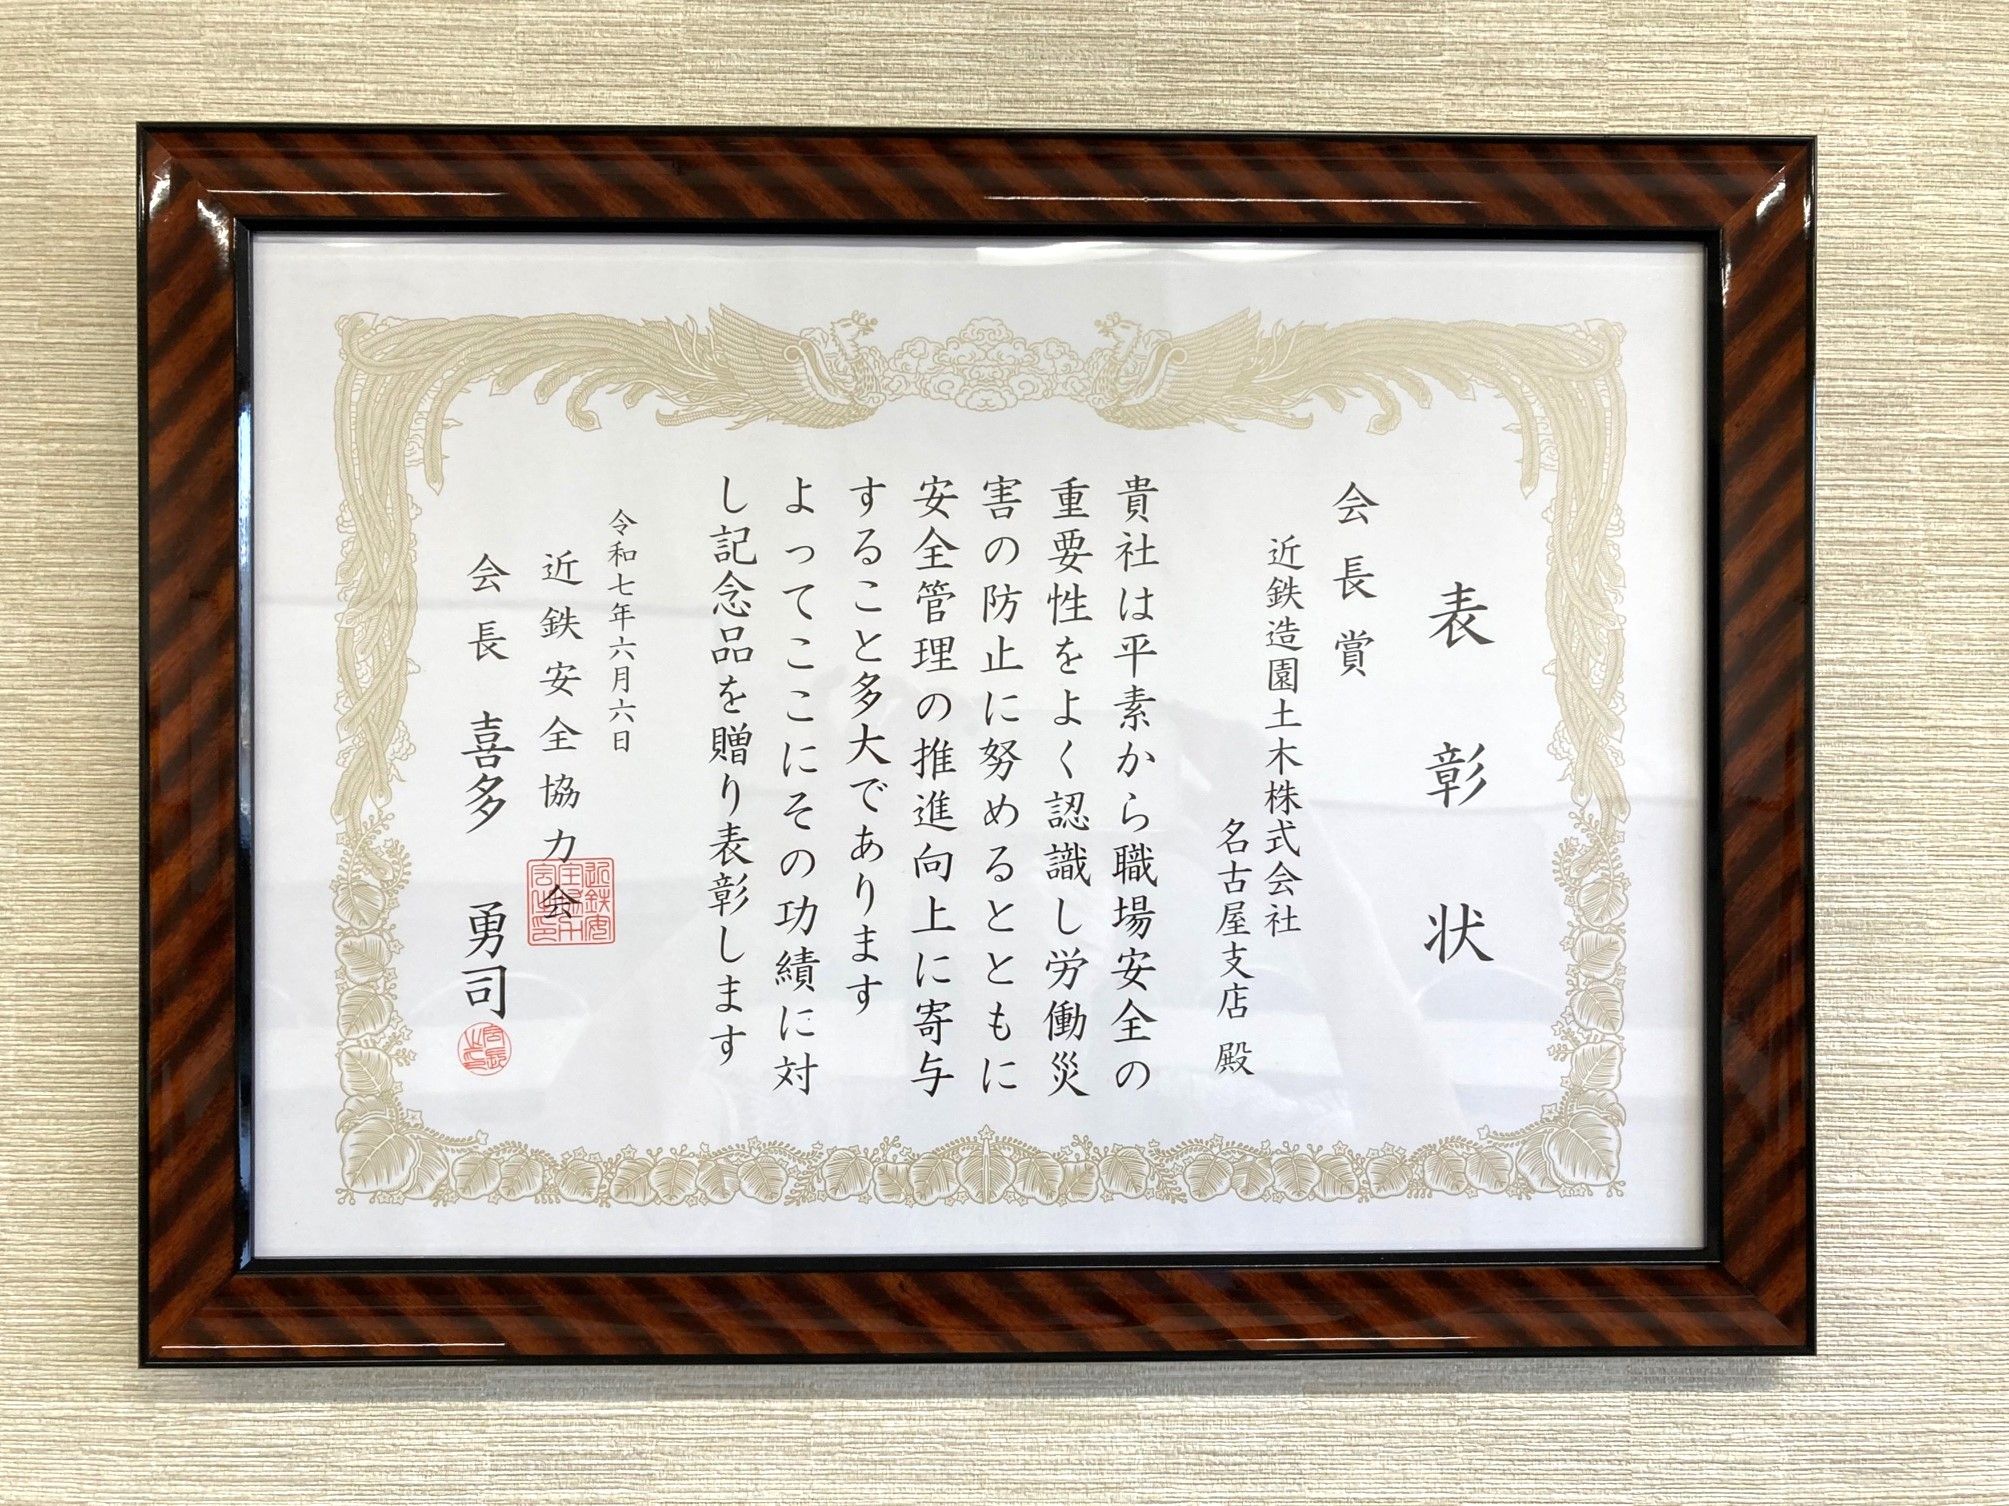 表彰状
会長賞
近鉄造園土木株式会社
名古屋支店 殿
貴社は平素から職場安全の
重要性をよく認識し労働災
害の防止に努めるとともに
安全管理の推進向上に寄与
すること多大であります
よってここにその功績に対
し記念品を贈り表彰します
令和七年六月六日
近鉄安全協力会
会長 喜多 勇司